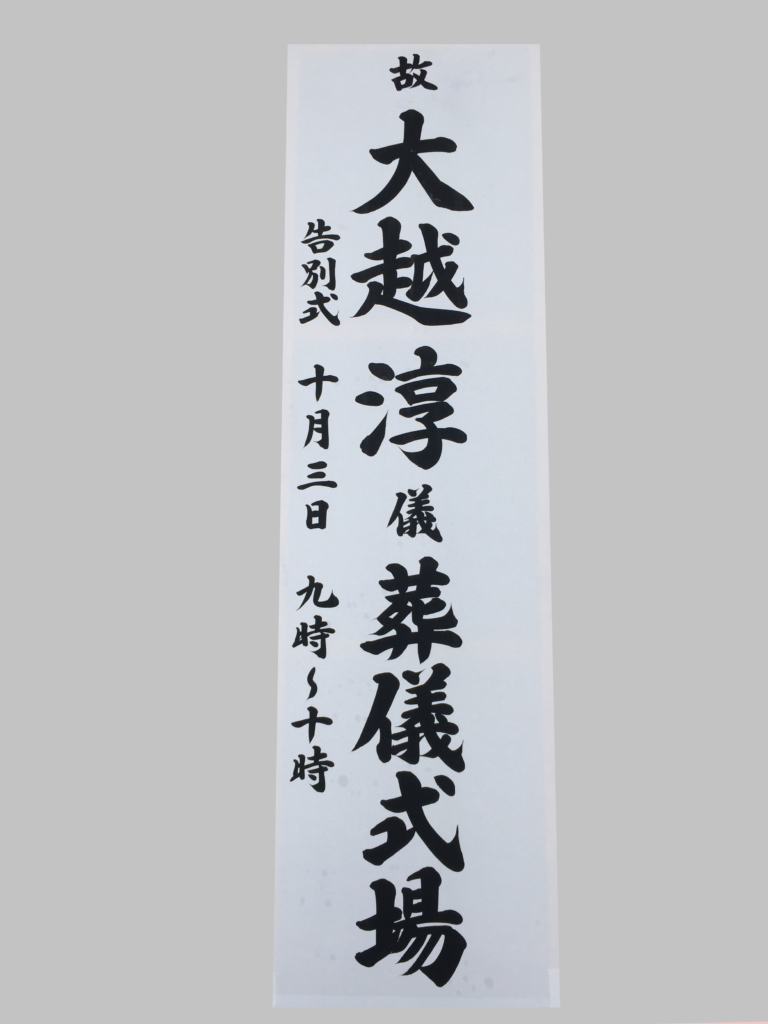 故 大越 淳 儀 葬儀式場
告別式 十月三日 九時〜十時